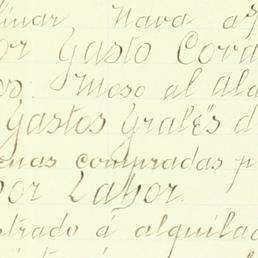 linar, Nava
or Gasto Cord
os. Moso al ala
Gastos Grales d
enas compradas p
por Labor.
strado á alquilad